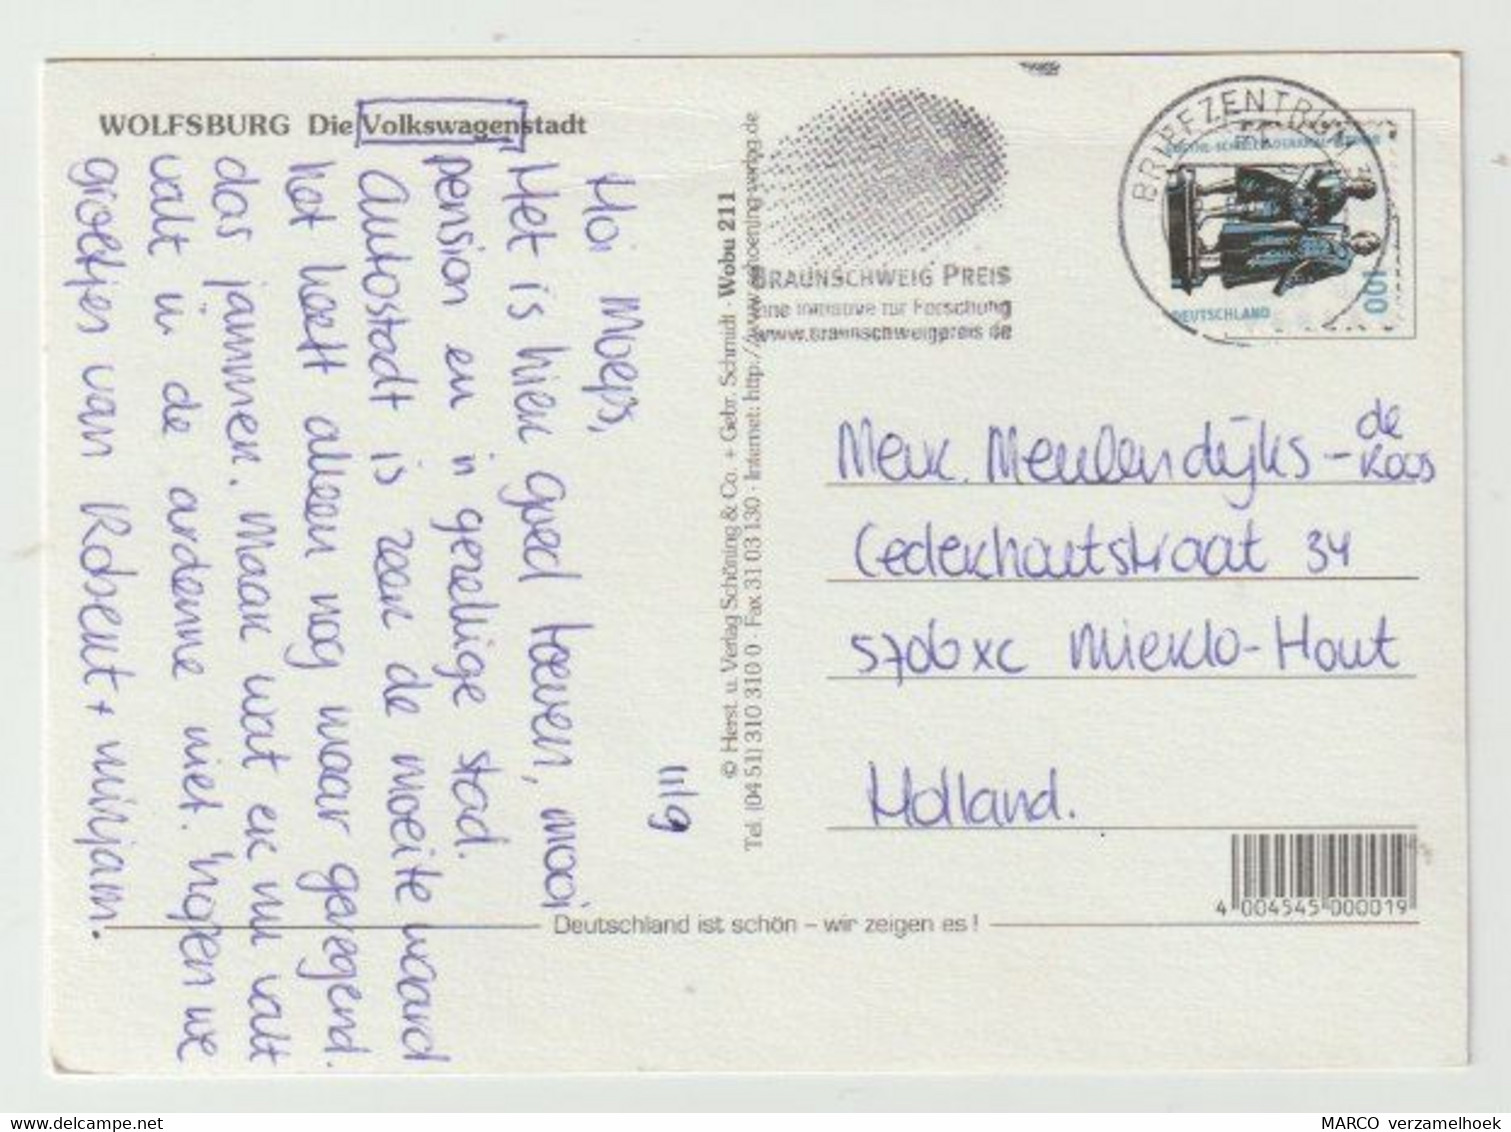 WOLFSBURG Die Volkswagenstadt
Hoi Moeps,
Het is hier goed toeven, mooi
pension en 'n gezellige stad.
Autostadt is zeer de moeite waard
het heeft alleen nog maar geregend.
das jammer. Maar wat er nu valt
valt in de ardenne niet. hopen we
groetjes van Robert + mirjam.
11/9
© Herst. u. Verlag Schöning & Co. + Gebr. Schmidt · Wobu 211
Tel. (04 51) 310 310 0 · Fax 31 03 130 · Internet: http://www.schoening-verlag.de
BRAUNSCHWEIG PREIS
Eine Initiative zur Forschung
www.braunschweigpreis.de
BRIEFZENTRUM
GOETHE-SCHILLER-DENKMAL
100
DEUTSCHLAND
Mevr. Meulendijks - de Roos
Cederhoutstraat 34
5706 XC Mierlo-Hout
Holland.
4 004545 000019
Deutschland ist schön – wir zeigen es!
MARCO verzamelhoek